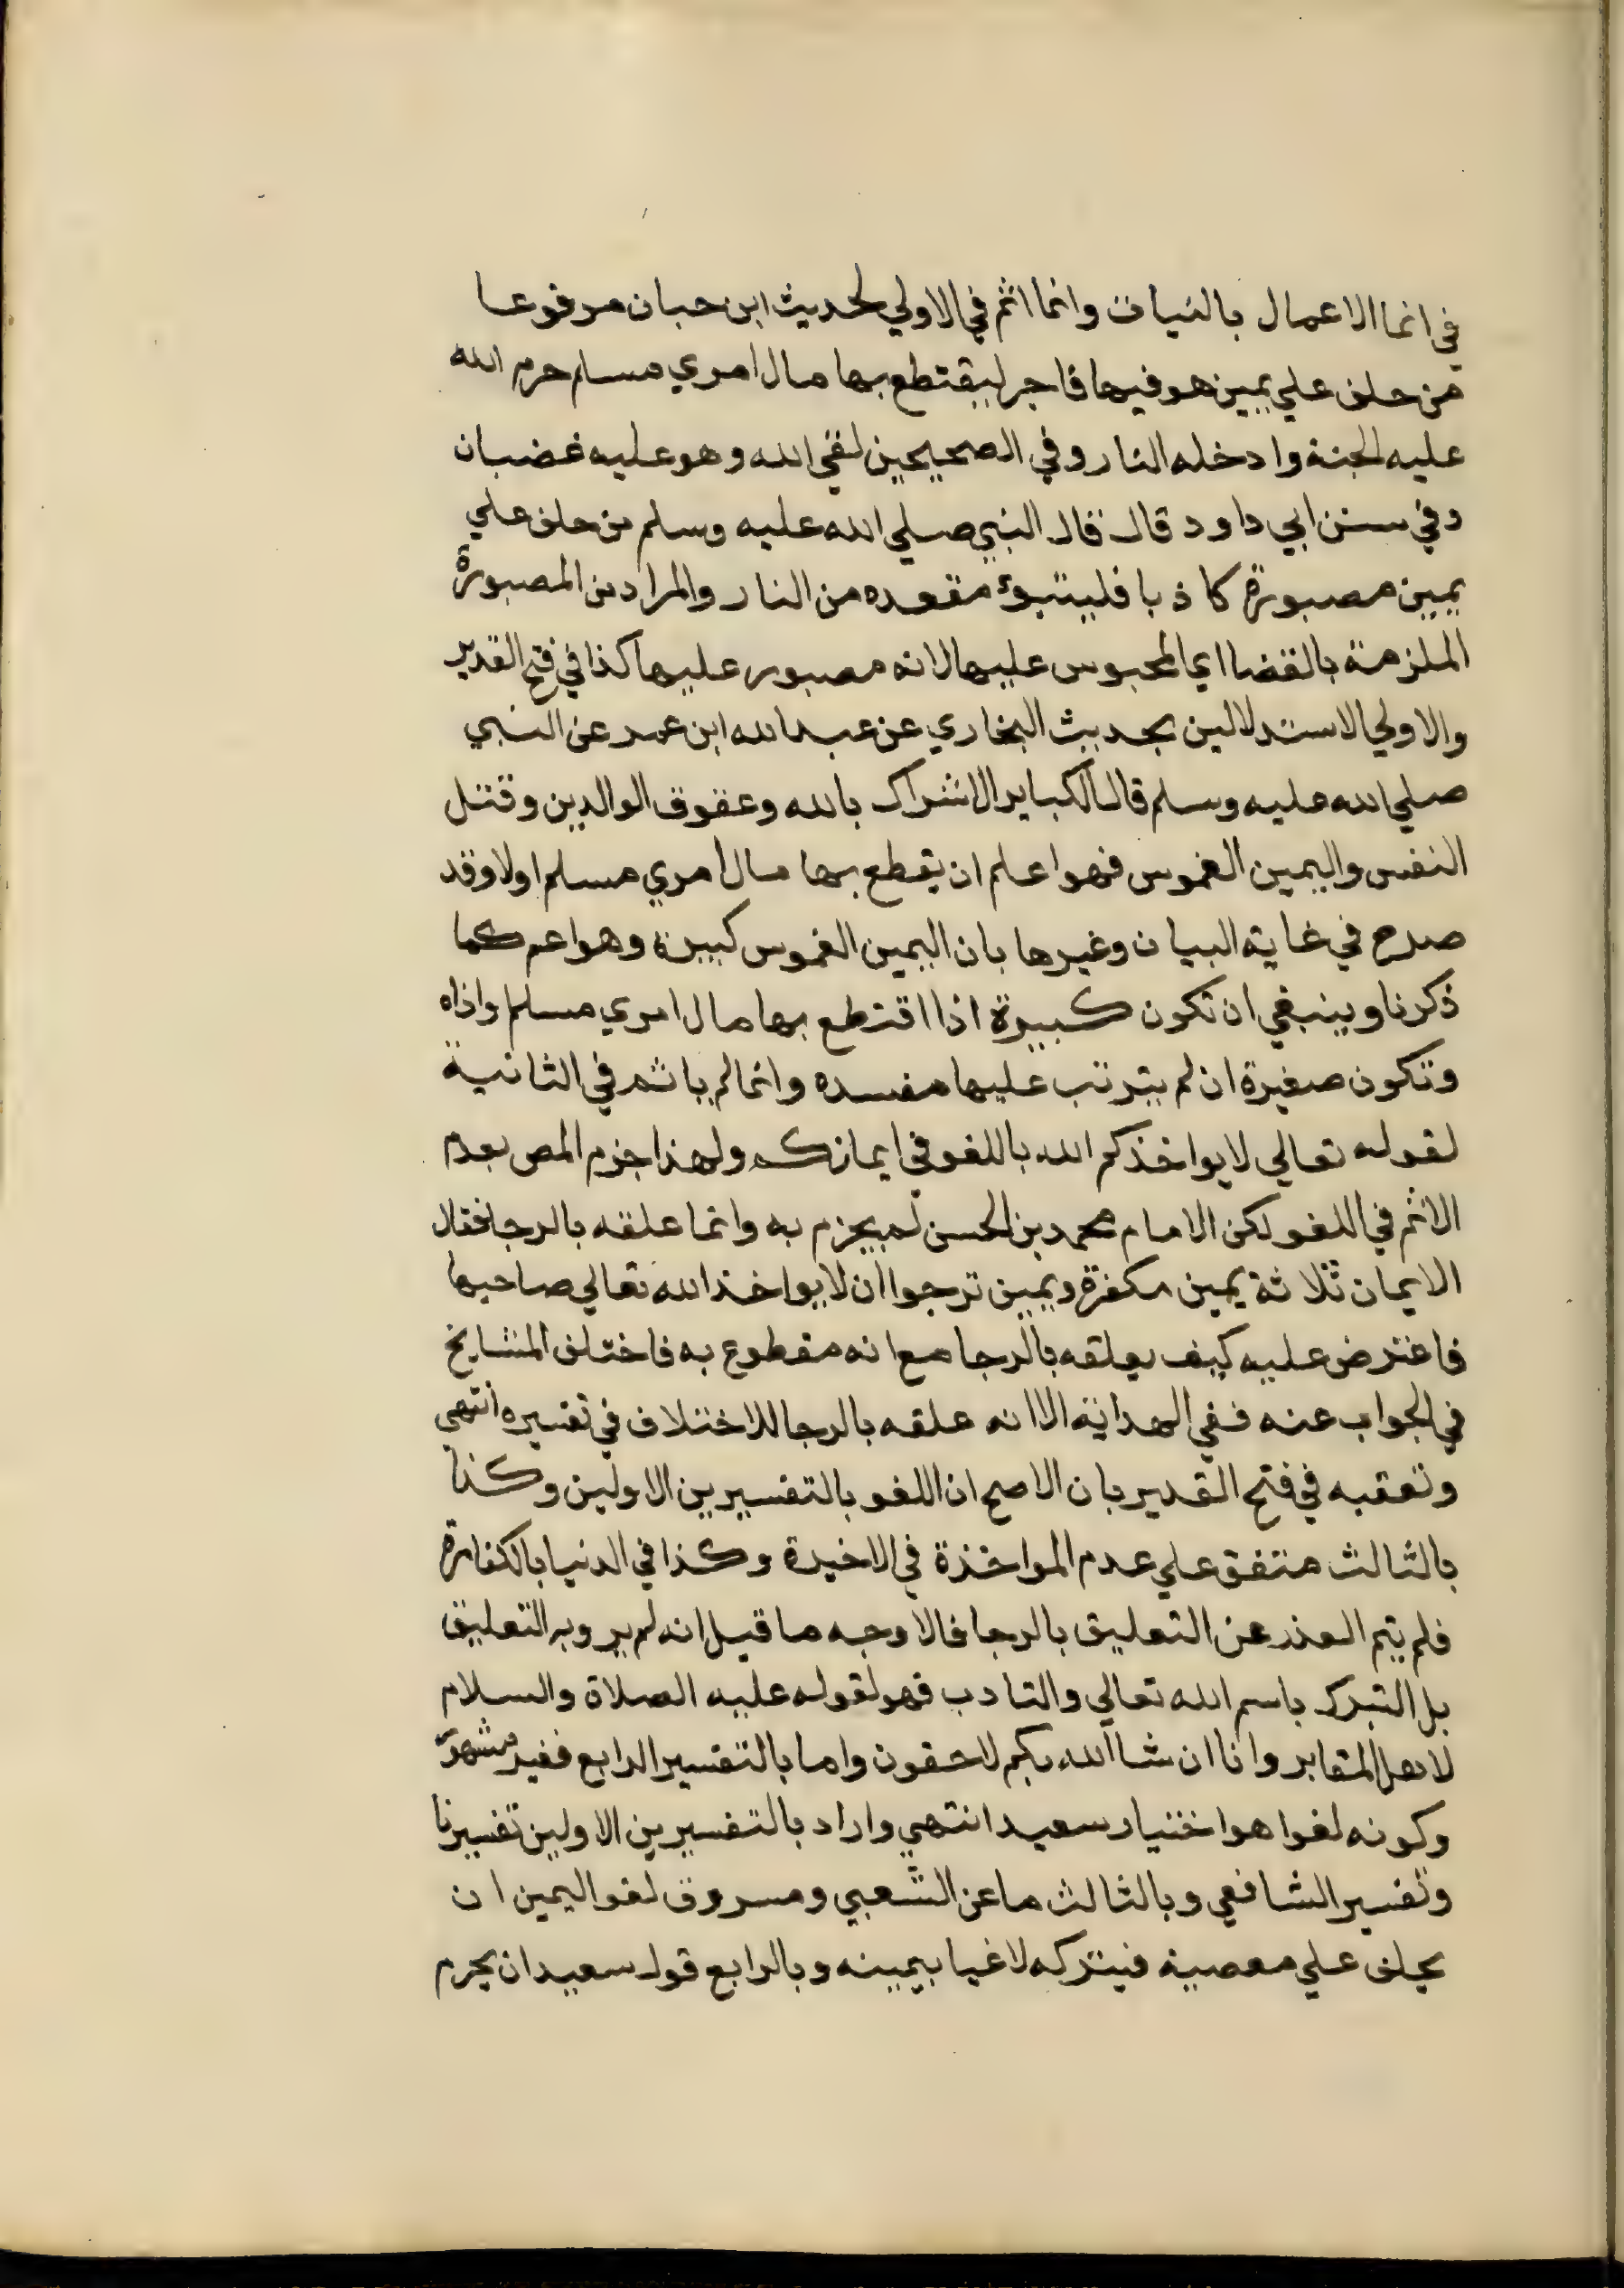 في انما الاعمال بالنيات وانما اثم في الاولي لحديث ابن حبان مرفوعا
من حلف علي يمين هو فيها فاجر ليقتطع بها مال امري مسلم حرم الله
عليه الجنة وادخله النار وفي الصحيحين لقي الله وهو عليه غضبان
وفي سنن ابي داود قال قال النبي صلي الله عليه وسلم من حلف علي
يمين مصبورة كاذبا فليتبوء مقعده من النار والمراد من المصبورة
الملزمة بالقضا اي المحبوس عليها لانه مصبور عليها كذا في فتح القدير
والاولي الاستدلالين بحديث البخاري عن عبد الله ابن عمر عن النبي
صلي الله عليه وسلم قال الكباير الاشراك بالله وعقوق الوالدين وقتل
النفس واليمين الغموس فهو اعلم ان يقطع بها مال امري مسلم اولا وقد
صرح في غاية البيان وغيرها بان اليمين الغموس كبيرة وهو اعم كما
ذكرنا وينبغي ان تكون كبيرة اذا اقتطع بها مال امري مسلم واذاه
وتكون صغيرة ان لم يترتب عليها مفسده وانما لم ياثم في الثانية
لقوله تعالي لا يواخذكم الله باللغو في ايمانكم ولهذا جزم المص بعدم
الاثم في اللغو لكن الامام محمد بن الحسن لم يجزم به وانما علقه بالرجا فقال
الايمان ثلاثة يمين مكفرة ويمين ترجوا ان لا يواخذ الله تعالي صاحبها
فاعترض عليه كيف يعلقه بالرجا مع انه مقطوع به فاختلف المشايخ
في الجواب عنه ففي الهداية الا انه علقه بالرجا للاختلاف في تفسيره انتهي
وتعقبه في فتح القدير بان الاصح ان اللغو بالتفسيرين الاولين وكذا
بالثالث متفق علي عدم المواخذة في الاخيرة وكذا في الدنيا بالكفارة
فلم يتم العذر عن التعليق بالرجا فالاوجه ما قيل انه لم يرو به التعليق
بل التبرك باسم الله تعالي والتادب فهو لقوله عليه الصلاة والسلام
لاهل المقابر وانا ان شا الله بكم لاحقون واما بالتفسير الرابع فغير مشهور
وكونه لغوا هو اختيار سعيد انتهي واراد بالتفسيرين الاولين تفسيرنا
وتفسير الشافعي وبالثالث ما عن الشعبي ومسروق لغو اليمين ان
يحلف علي معصية فيتركه لاغيا بيمينه وبالرابع قول سعيد ان يحرم